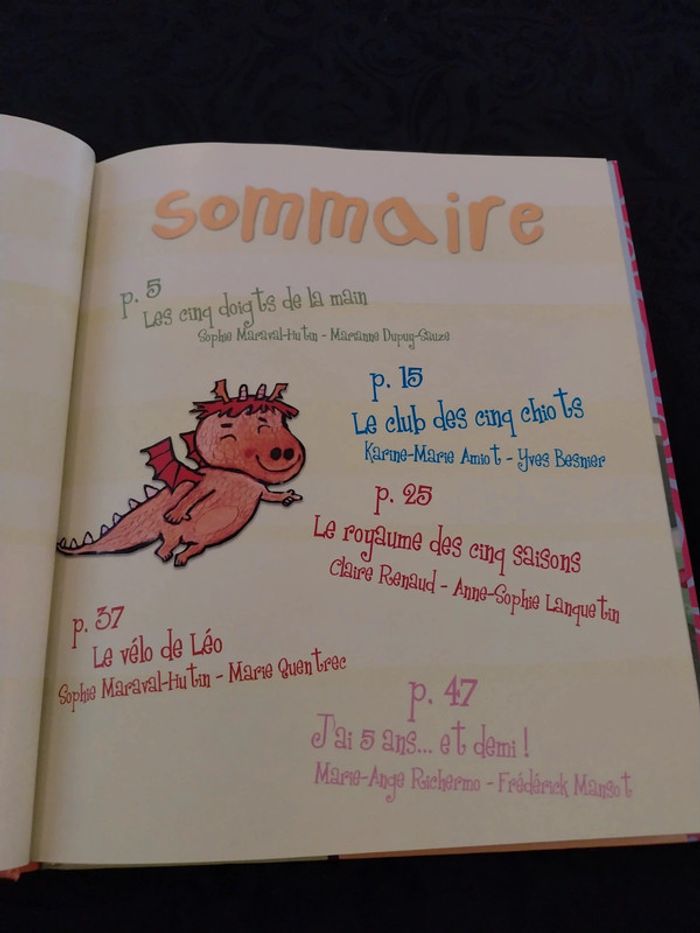 sommaire
p. 5
Les cinq doigts de la main
Sophie Maraval-Hutin - Marianne Dupuy-Sauze
p. 15
Le club des cinq chiots
Karine-Marie Amiot - Yves Besnier
p. 25
Le royaume des cinq saisons
Claire Renaud - Anne-Sophie Lanquetin
p. 37
Le vélo de Léo
Sophie Maraval-Hutin - Marie Quentrec
p. 47
J'ai 5 ans... et demi !
Marie-Ange Richermo - Frédérick Mansot